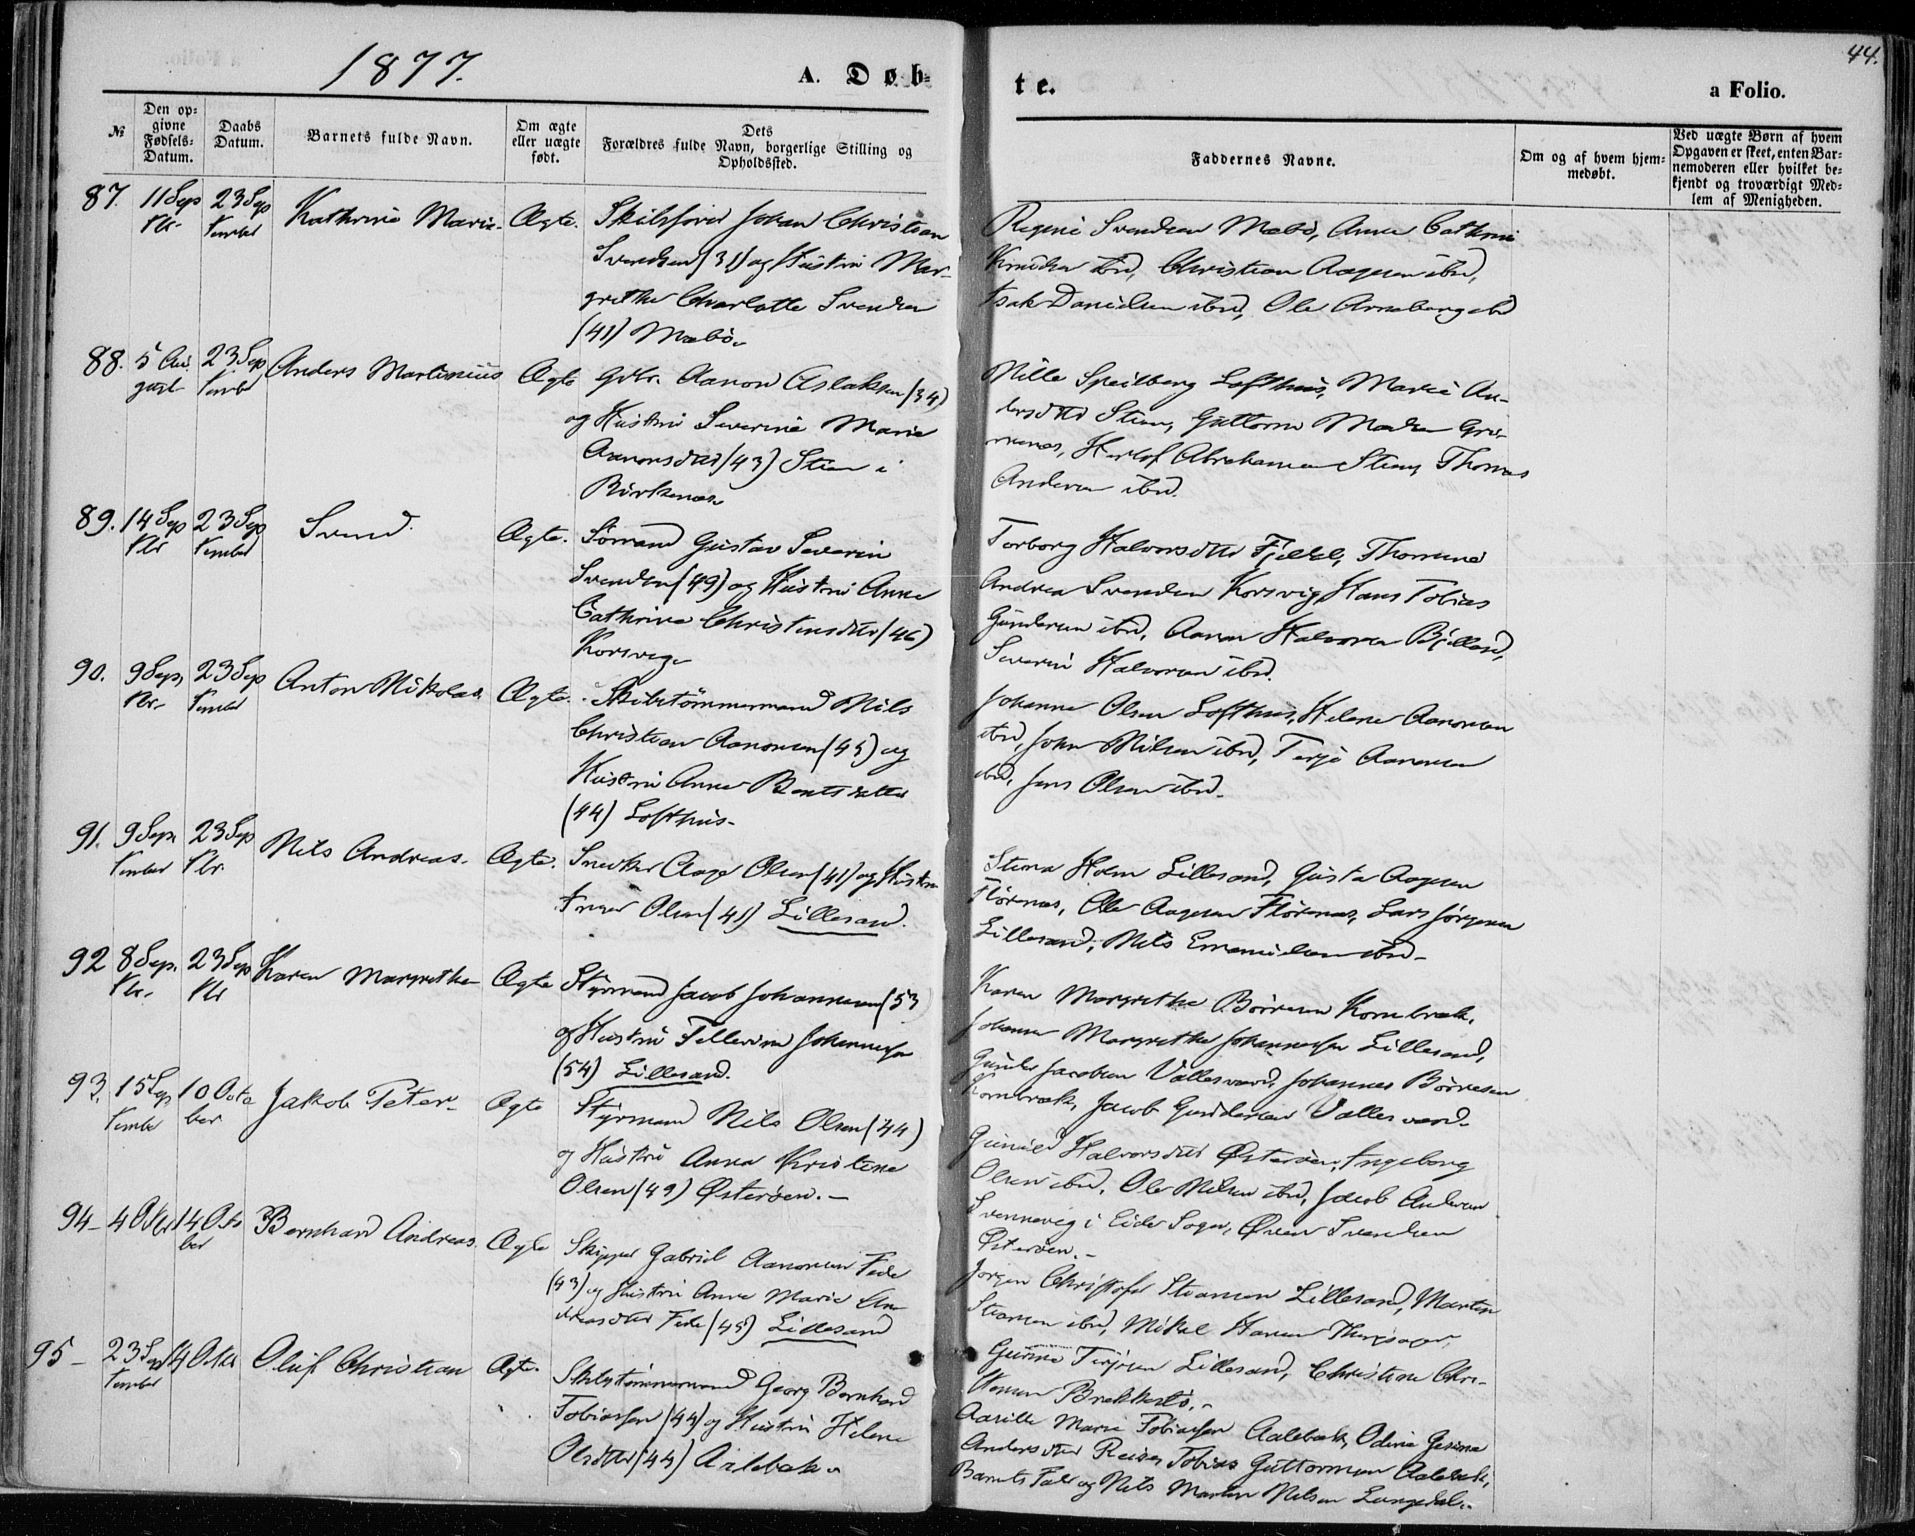 1877.
A. Døb-
te.
a Folio.
44.
№
Den op-
givne
Fødsels-
Datum.
Daabs
Datum.
Barnets fulde Navn.
Om ægte
eller uægte
født.
Dets
Forældres fulde Navn, borgerlige Stilling og
Opholdssted.
Faddernes Navne.
Om og af hvem hjem-
medøbt.
Ved uægte Børn af hvem
Opgaven er skeet, enten Bar-
nemoderen eller hvilket be-
kjendt og troværdigt Med-
lem af Menigheden.
87. 11 Sep 23 Sep Kathrine Marie Ægte. Skibsfører Johan Christian
tember
Svendsen (31) og Hustru Mar-
grethe Charlotte Svendsen
(41) Mæbø
Regine Svendsen Mæbø, Anne Cathrine
Knudsen ibd, Christian Aagesen ibd,
Isak Danielsen ibd, Ole
88. 5 Au 23 Sep Anders Martinius Ægte Gdbr. Aanon Aslaksen (34)
gust tember
og Hustru Severine Marie
Aanonsdtter (43) Steen i
Birkenæs
Nille Speilberg Lofthus, Marie An-
dersdtter Steen, Guttorm Madsen
Herlof Abrahamsen Steen, Thomas
Andersen ibd.
89. 14 Sep 23 Sep Svend. Ægte. Sømand Gustav Severin
tember
Svendsen (49) og Hustru Anne
Cathrine Christensdtter (46)
Korsvig
Torborg Halvorsdtter Fjeldal, Thomine
Andrea Svendsen Korsvig, Hans Tobias
Gundersen ibd, Aanon Halvorsen Bjelland,
Severin Halvorsen ibd.
90. 9 Sep 23 Sep Anton Nikolai Ægte. Skibstømmermand Nils
tember
Christian Aanonsen (45) og
Hustru Anne Bentsdatter
(44) Lofthus
Johanne Olsen Lofthus, Helene Aanonsen
ibd, John Nilsen ibd, Terje Aanonsen
ibd, Jens Olsen ibd.
91. 9 Sep 23 Sep Nils Andreas. Ægte. Snedker Aage Olsen (41) og Hustru
tember
Inger Olsen (41) Lillesand.
Stina Holm Lillesand, Gusta Aagesen
Flörenæs, Ole Aagesen Flörenæs, Lars Jörgensen
Lillesand, Nils Emanuelsen ibd
92 8 Sep. 23 Sep Karen Margrethe Ægte Styrmand Jacob Johannesen (53
og Hustru Tellevine Johannesen
(54) Lillesand.
Karen Margrethe Børresen Kornbræk,
Johanne Margrethe Johannesen Lillesand,
Gunder Jacobsen Vallesværd, Johannes Børresen
Kornbræk, Jacob Gundersen Vallesværd
93. 15 Sep 10 Octo Jakob Peter Ægte Styrmand Nils Olsen (44)
tember ber
og Hustru Anna Kristine
Olsen (49) Østerøen.
Gunild Halvorsdtter Østerøen, Ingeborg
Olsen ibd, Ole Nilsen ibd, Jacob Andersen
Svennevig i Eide Sogn, Svendsen
Østerøen.
94 4 Okt 14 Octo Bernhard Andreas. Ægte Skipper Gabriel Aanonsen Fede
ber
(43) og Hustru Anne Marie An
dreasdtter Fede (45) Lillesand
Jørgen Christofer Lillesand, Martin
ibd, Mikal Hansen
Gurine Terjesen Lillesand, Christine Chri-
stensen Brekkestø.
95 23 Sep 14 Octbr Oluf Christian Ægte. Skibstømmermand Georg Bernhard
tember
Tobiassen (44) og Hustru Helene
Olsdtter (44) Aalebæk
Aasille Marie Tobiassen Aalebæk, Odine Gesine
Andersdtter Tobias Guttormsen Aalebæk,
Barnets Fader og Nils Martin Nilsen Langedal